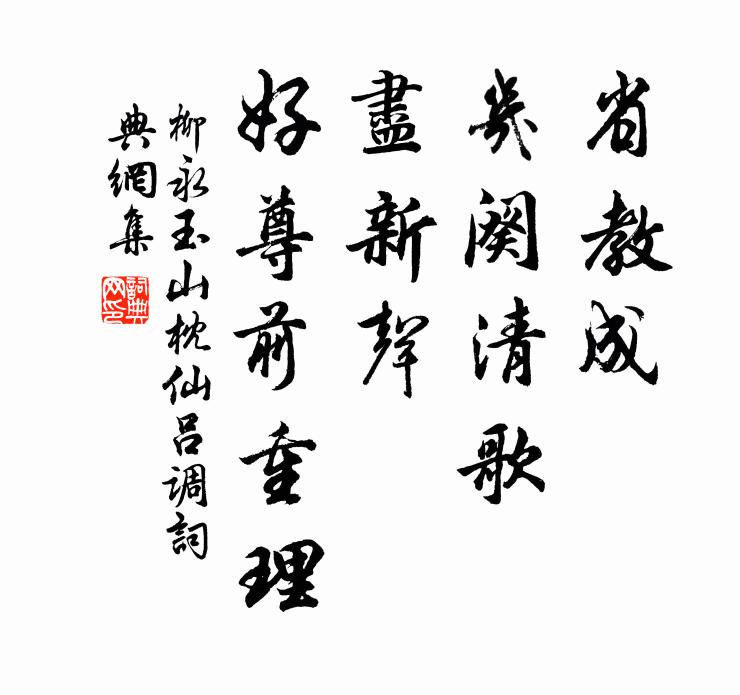 省教成
幾闋清歌
盡新聲
好尊前重理
柳永玉山枕仙呂調詞
典網集
詞典
网印